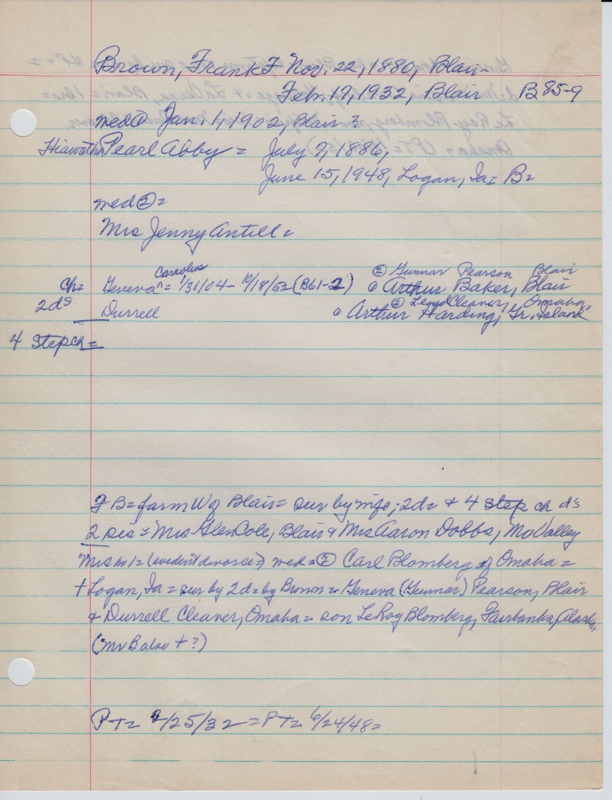 Brown, Frank F Nov. 22, 1880, Blair-
Feb. 17, 1932, Blair B85-9
med① Jan 1, 1902, Blair?
Hiawatha Pearl Abby = July 7, 1886,
June 15, 1948, Logan, Ia = B=
med②=
Mrs Jenny Antill =
② Gunnar Pearson Blair
ch= Geneva Carolus = 1/31/04 - 10/18/52 (B61-2) ① Arthur Baker, Blair
② Lloyd Cleaver, Omaha
2ds Durrell ① Arthur Harding, Gr. Island
4 Step ch =
F B = farm W of Blair = sur by wife; 2d = & 4 step ch ds
2 sis = Mrs Glen Cole, Blair & Mrs Aaron Dobbs, Mo Valley
Mrs no 1 = (evident divorce =) med = ② Carl Blomberg of Omaha =
+ Logan, Ia = sur by 2d = by Brown = Geneva (Gunnar) Pearson, Blair
& Durrell Cleaver, Omaha = son LeRoy Blomberg, Fairbanks, Alaska,
(Mr B also + ?)
PT= 2/25/32 = PT= 6/24/48 =